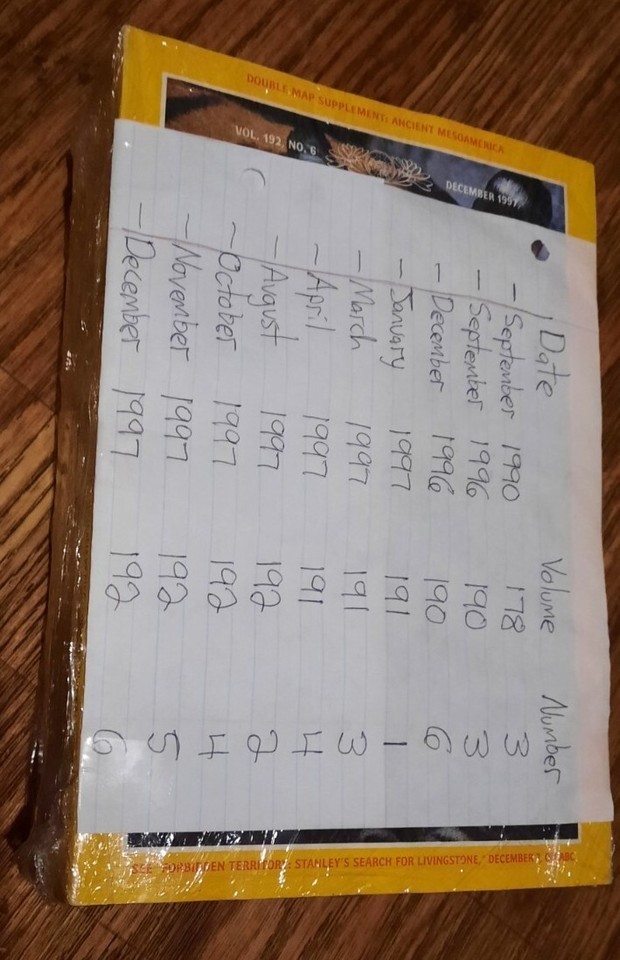 DOUBLE MAP SUPPLEMENT: ANCIENT MESOAMERICA
VOL. 192, NO. 6
DECEMBER 1997
Date Volume Number
- September 1990 178 3
- September 1996 190 3
- December 1996 190 6
- January 1997 191 1
- March 1997 191 3
- April 1997 191 4
- August 1997 192 2
- October 1997 192 4
- November 1997 192 5
- December 1997 192 6
SEE "FORBIDDEN TERRITORY: STANLEY'S SEARCH FOR LIVINGSTONE," DECEMBER ABC